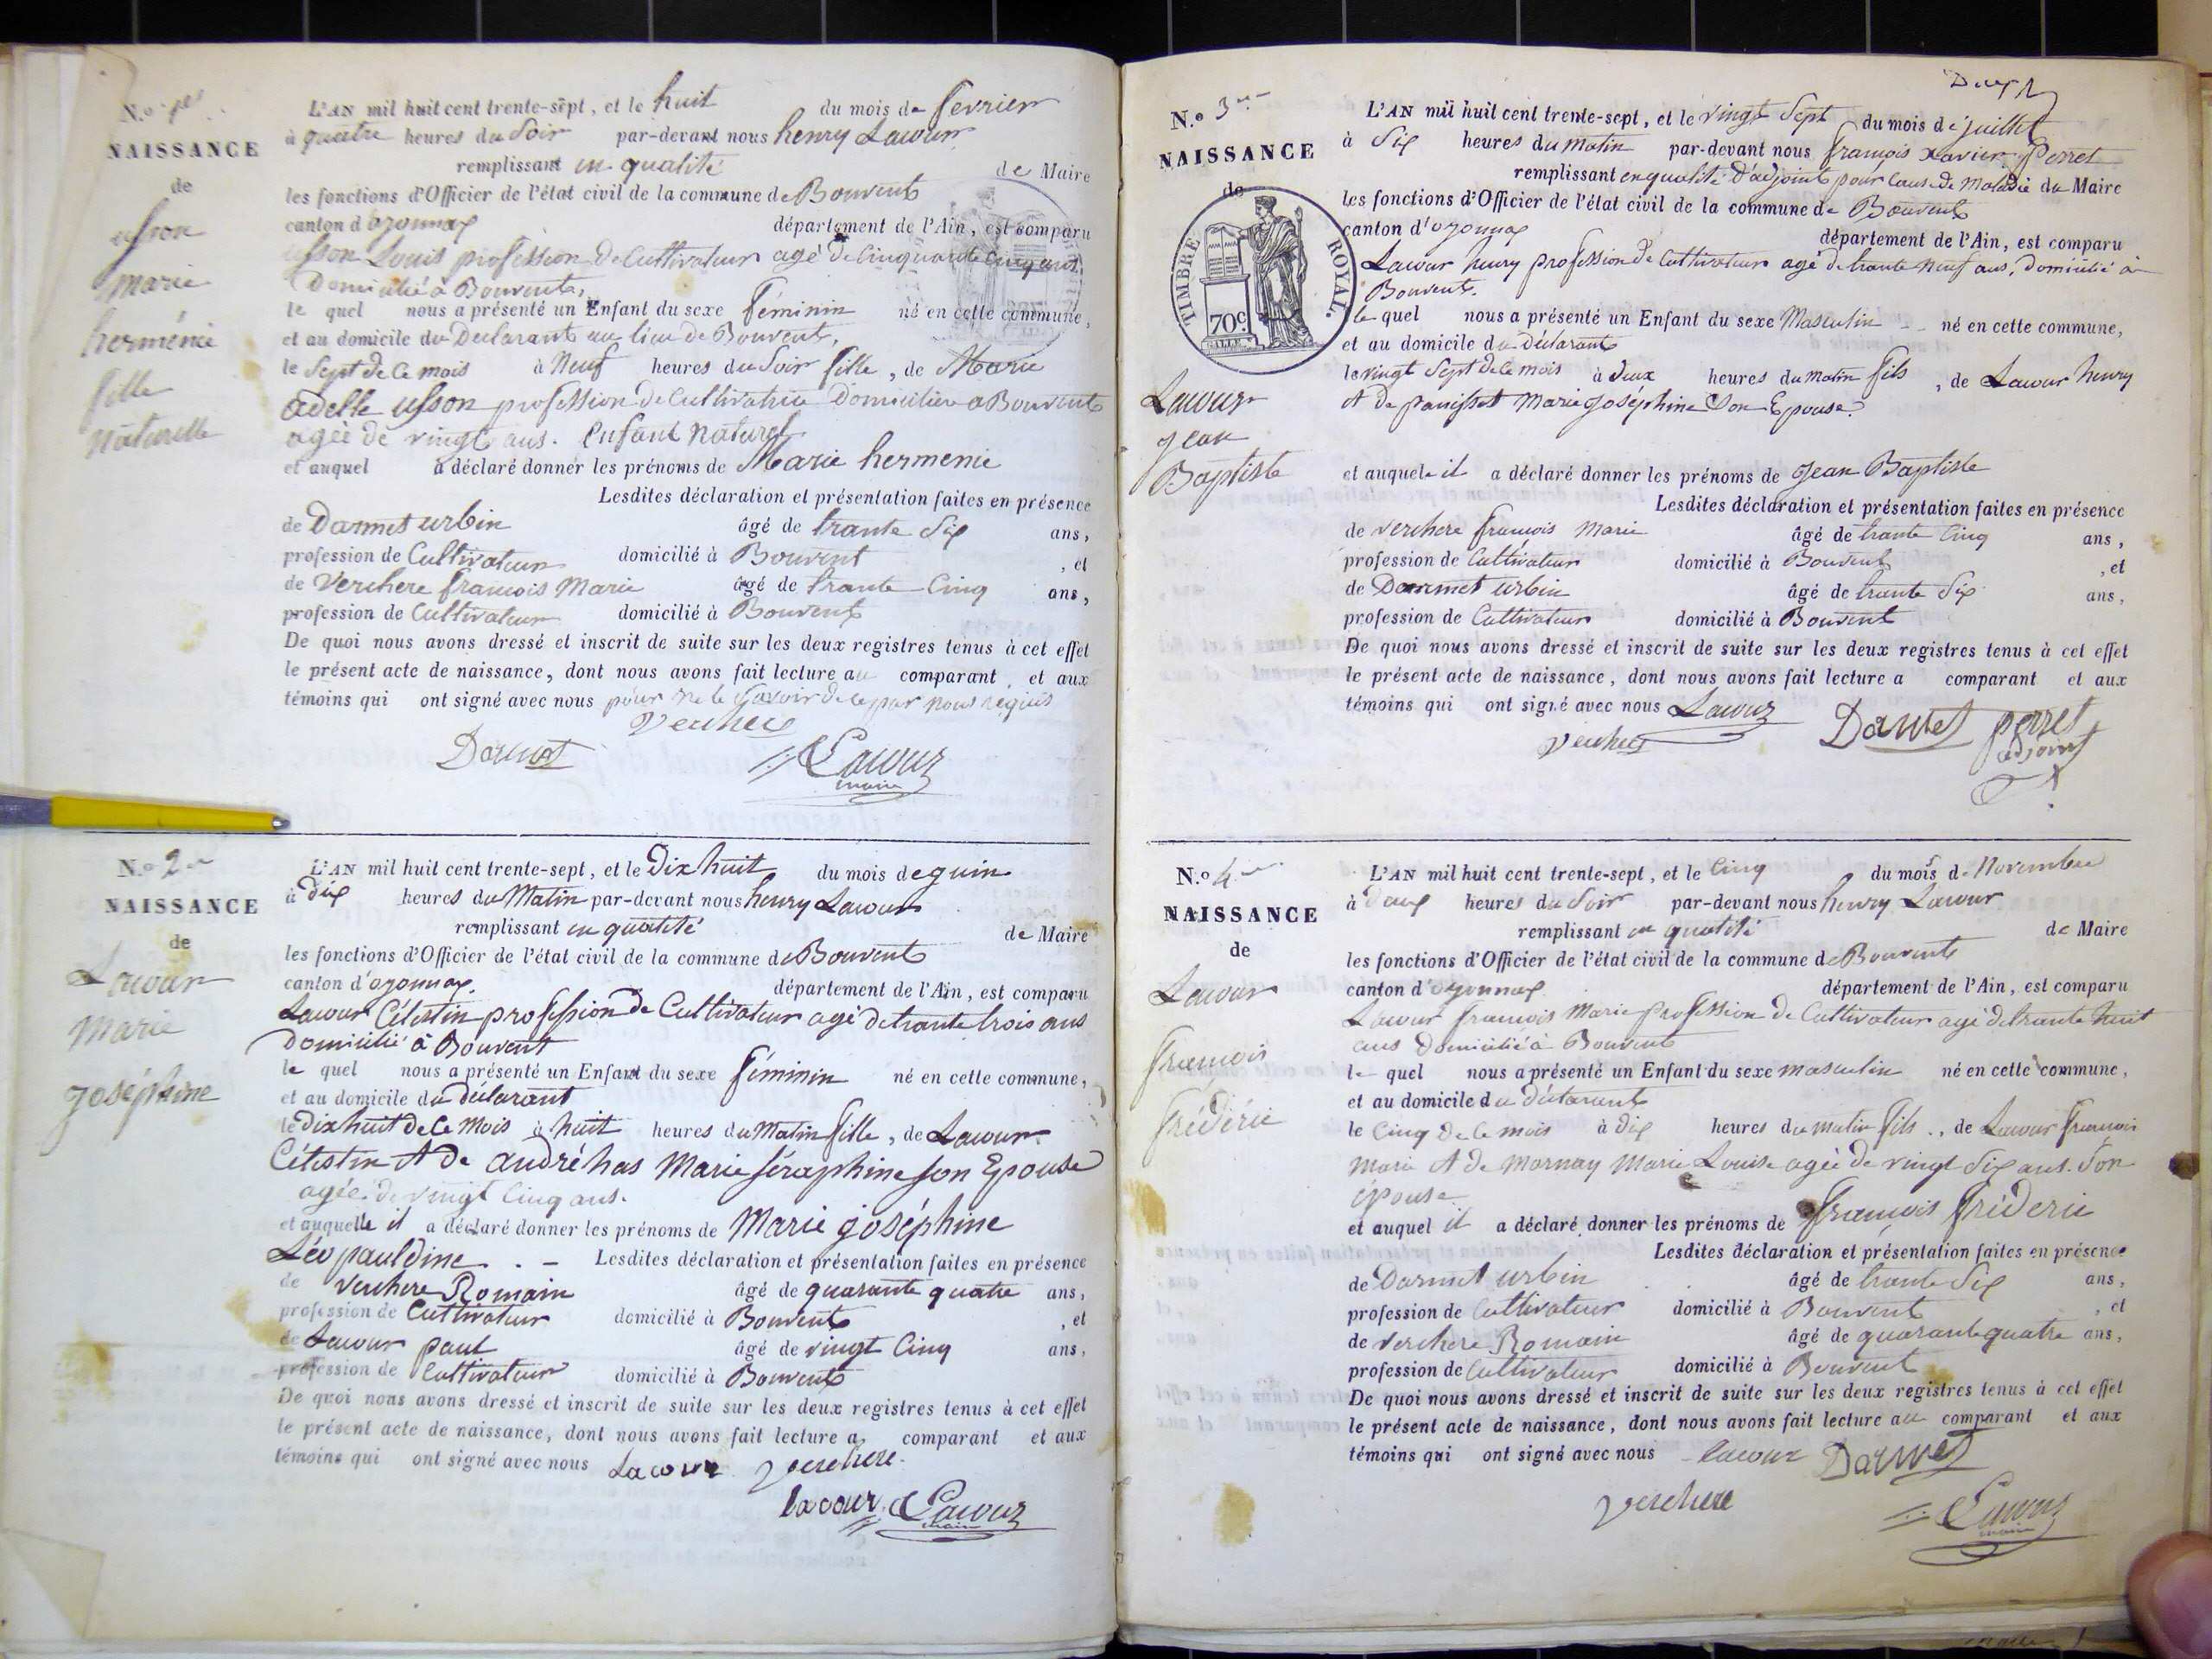 N.o 1er
NAISSANCE
de
usson
marie
herménie
fille
naturelle
L'AN mil huit cent trente-sept, et le huit du mois de fevrier
à quatre heures du Soir par-devant nous henry Lacour
remplissant en qualité de Maire
les fonctions d'Officier de l'état civil de la commune de Bouvent
canton d'oyonnax département de l'Ain, est comparu
usson Louis profession de Cultivateur agé de Cinquante Cinq ans
Domicilié à Bouvent,
le quel nous a présenté un Enfant du sexe féminin né en cette commune,
et au domicile du Declarant au lieu de Bouvent,
le Sept de Ce mois à Neuf heures du Soir fille, de Marie
adelle usson profession de Cultivatrice Domiciliée a Bouvent
agée de vingt ans. Enfant Naturel
et auquel a déclaré donner les prénoms de Marie hermenie
Lesdites déclaration et présentation faites en présence
de Darmet urbin âgé de trante Six ans,
profession de Cultivateur domicilié à Bouvent, et
de Verchere francois Marie âgé de trante Cinq ans,
profession de Cultivateur domicilié à Bouvent
De quoi nous avons dressé et inscrit de suite sur les deux registres tenus à cet effet
le présent acte de naissance, dont nous avons fait lecture au comparant, et aux
témoins qui ont signé avec nous pour ne le Savoir de ce par nous requis
Verchere
Darmet Lacour
maire
N.o 2me
NAISSANCE
de
Lacour
Marie
joséphine
L'AN mil huit cent trente-sept, et le Dix huit du mois de juin
à Dix heures du Matin par-devant nous henry Lacour
remplissant en qualité de Maire
les fonctions d'Officier de l'état civil de la commune de Bouvent
canton d'oyonnax. département de l'Ain, est comparu
Lacour Célestin profession de Cultivateur agé de trante trois ans
Domicilié à Bouvent
le quel nous a présenté un Enfant du sexe féminin né en cette commune,
et au domicile du déclarant
le Dix huit de Ce Mois à huit heures du Matin fille, de Lacour
Célestin et de andré has Marie Séraphine son Epouse
agée de vingt Cinq ans.
et auquelle il a déclaré donner les prénoms de Marie joséphine
Léo pauldine. Lesdites déclaration et présentation faites en présence
de verchere Romain âgé de quarante quatre ans,
profession de Cultivateur domicilié à Bouvent, et
de Lacour paul âgé de vingt Cinq ans,
profession de Cultivateur domicilié à Bouvent
De quoi nous avons dressé et inscrit de suite sur les deux registres tenus à cet effet
le présent acte de naissance, dont nous avons fait lecture a comparant et aux
témoins qui ont signé avec nous Lacour verchere
lacour Lacour
maire
N.o 3me
NAISSANCE
de
TIMBRE ROYAL.
70c.
Lacour
jean
Baptiste
L'AN mil huit cent trente-sept, et le vingt Sept du mois de juillet
à Six heures du matin par-devant nous françois xavier Perret
remplissant en qualité d'adjoint pour Cause de Maladie du Maire
les fonctions d'Officier de l'état civil de la commune de Bouvent
canton d'oyonnax département de l'Ain, est comparu
Lacour henry profession de Cultivateur agé de trante neuf ans, Domicilié à
Bouvent.
le quel nous a présenté un Enfant du sexe Masculin né en cette commune,
et au domicile du déclarant
le vingt Sept de Ce mois à deux heures du Matin fils, de Lacour henry
et de panisset Marie joséphine Son Epouse.
et auquele il a déclaré donner les prénoms de jean Baptiste
Lesdites déclaration et présentation faites en présence
de verchere francois Marie âgé de trante Cinq ans,
profession de Cultivateur domicilié à Bouvent, et
de Darmet urbin âgé de trante Six ans,
profession de Cultivateur domicilié à Bouvent
De quoi nous avons dressé et inscrit de suite sur les deux registres tenus à cet effet
le présent acte de naissance, dont nous avons fait lecture a comparant et aux
témoins qui ont signé avec nous Lacour Darmet perret
verchere adjoint
N.o 4me
NAISSANCE
de
Lacour
francois
fréderic
L'AN mil huit cent trente-sept, et le Cinq du mois de Novembre
à Deux heures du Soir par-devant nous henry Lacour
remplissant en qualité de Maire
les fonctions d'Officier de l'état civil de la commune de Bouvent
canton d'oyonnax département de l'Ain, est comparu
Lacour francois Marie profession de Cultivateur agé de trante huit
ans Domicilié à Bouvent
le quel nous a présenté un Enfant du sexe masculin né en cette commune,
et au domicile du déclarant
le Cinq de Ce mois à dix heures du matin fils, de Lacour francois
Marie et de Mornay Marie Louise agée de vingt Six ans. Son
épouse
et auquel il a déclaré donner les prénoms de francois fréderic
Lesdites déclaration et présentation faites en présence
de Darmet urbin âgé de trante Six ans,
profession de Cultivateur domicilié à Bouvent, et
de verchere Romain âgé de quarante quatre ans,
profession de Cultivateur domicilié à Bouvent
De quoi nous avons dressé et inscrit de suite sur les deux registres tenus à cet effet
le présent acte de naissance, dont nous avons fait lecture au comparant et aux
témoins qui ont signé avec nous lacour Darmet
verchere Lacour
maire